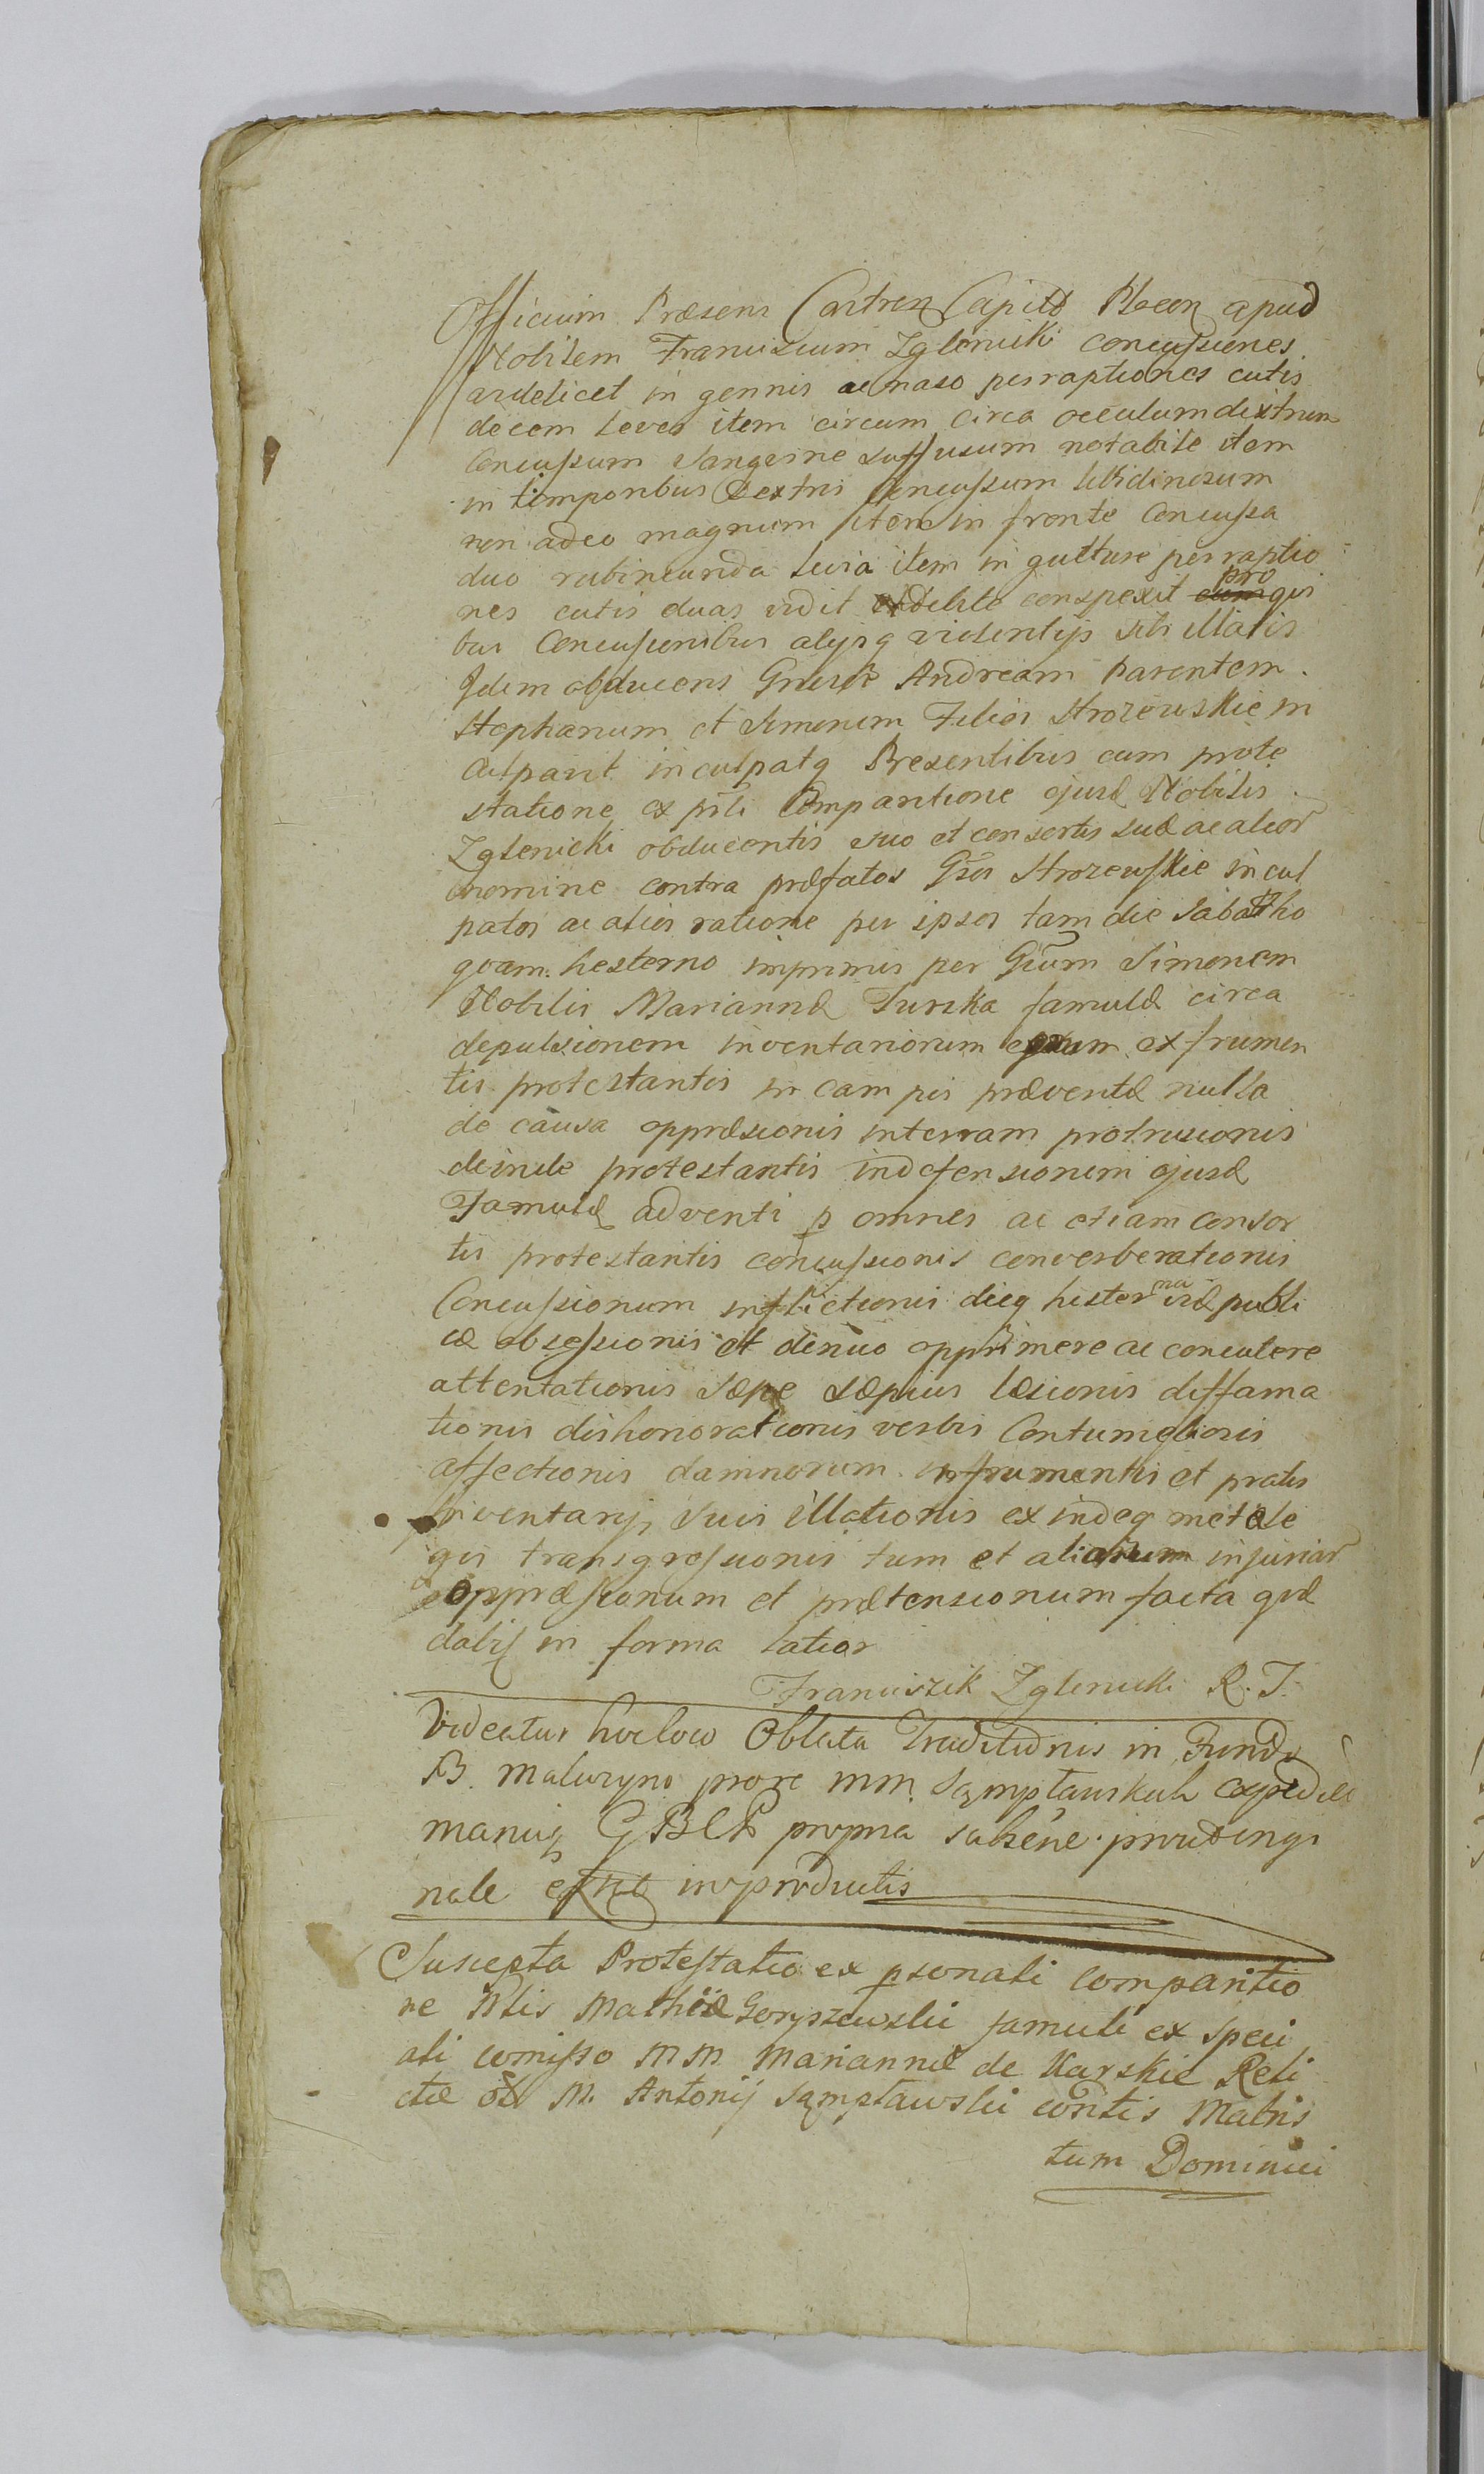 Officium Præsens Castren Capitl Plocen apud
Nobilem Franciscum Zglenicki concussiones
videlicet in gennis ac naso perraptiones cutis
decem leves item circum circa occulum dextrum
Concussum Sangvine suffusum notabile item
in timporibus Dextris Concussum libidinosum
non adeo magnum item in fronte Concussa
duo rubincunda levia item in gutture perraptio
nes cutis duas vidit et debite conspexit pro qvi
bus Concussionibus alijsq violentijs sibi illatis
Idem obducens Andream Parentem
Stephanum et Simonem Filios Strozewskie in
culpavit inculpatq Presentibus cum prote
statione ex psti Comparitione ejusd Nobilis
Zglenicki obducentis suo et consortis suæ ac alior
nomine contra præfatos Gsos Strozewskie incul
patos ac alios ratione per ipsos tam die Sabatho
qvam hesterno imprimis per Gsum Simonem
Nobilis Mariannæ Turska famulæ circa
depulsionem inventariorum eorum ex frumen
tis protestantis in campis præventæ nulla
de causa oppræsionis interram protrusionis
deinde protestantis indefensionem ejusd
Famulæ adventi p omnes ac etiam consor
tis protestantis concussionis converberationis
Concussionum inflictionis dieq hesterna viæ publi
cæ obsessionis et denuo opprimere ac concutere
attentationis sæpe sæpius læsionis diffama
tionis dishonorationis verbis Contumeliosis
affectionis damnorum infrumentis et pratis
inventarijs suis illationis ex indeq metæ le
gis transgressionis tum et aliorum injuriar
oppræssionum et prætensionum facta qvæ
dabis in forma latior
Franciszek Zglenicki R. T.
Videatur hocloco Oblata Traditionis in Fundo
B. Maluzyno prore MM. Sąmpławskich expedit
manuq GBCP propria subscne provt origi
nale in productis
Suscepta Protestatio ex psonali comparitio
ne Nlis Mathiæ Goryszewski famuli ex speci
ali comisso MM Mariannæ de Karskie Reli
ctæ ol M. Antonij Sąmpławski contis Matris
tum Dominici